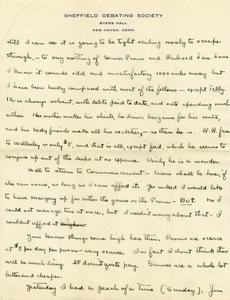 SHEFFIELD DEBATING SOCIETY
BYERS HALL
NEW HAVEN, CONN.
still I can see it is going to be tight sailing merely to scrape
through, to say nothing of Senior Prom and Railroad fare home.
I know it sounds odd and unsatisfactory 1000 miles away but
I have been lucky compared with most of the fellows except
He is always solvent, with debts paid to date, and not spending much
either. His mother makes his shirts, he draws bargains for his suits,
and his lady friends make all his neckties, as there is. R.R. fare
to Wellesley is only $5, and that is all, except food, which he seems to
conjure up out of the depths at no expense. Verily he is a wonder.
Well to return to Commencement. Cress shall be here, if
she can come, as long as I can afford it. Yes indeed I would like
to have Margery up for either the game or the Prom. But. No I
could not manage two at once, but I needn't worry about that. I
couldn't afford it
You know things come high here then. Rooms are scarce
at $5 per day per person very scarce. In fact I don't think there
will be much doing. It doesn't quite pay. Summer are a whole lot
better and cheaper.
Yesterday I had a peach of a time (Sunday). Jim